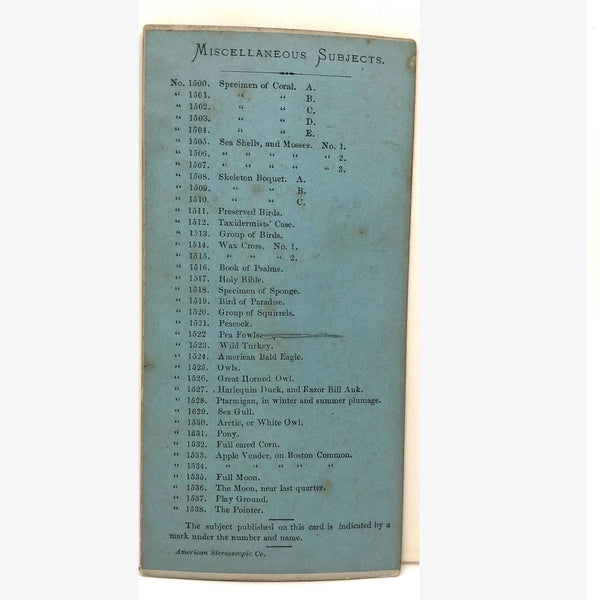 MISCELLANEOUS SUBJECTS.
No. 1500. Specimen of Coral. A.
“ 1501. “ “ B.
“ 1502. “ “ C.
“ 1503. “ “ D.
“ 1504. “ “ E.
“ 1505. Sea Shells, and Mosses. No. 1.
“ 1506. “ “ “ “ “ 2.
“ 1507. “ “ “ “ “ 3.
“ 1508. Skeleton Boquet. A.
“ 1509. “ “ B.
“ 1510. “ “ C.
“ 1511. Preserved Birds.
“ 1512. Taxidermists' Case.
“ 1513. Group of Birds.
“ 1514. Wax Cross. No. 1.
“ 1515. “ “ “ 2.
“ 1516. Book of Psalms.
“ 1517. Holy Bible.
“ 1518. Specimen of Sponge.
“ 1519. Bird of Paradise.
“ 1520. Group of Squirrels.
“ 1521. Peacock.
“ 1522 Pea Fowls.
“ 1523. Wild Turkey.
“ 1524. American Bald Eagle.
“ 1525. Owls.
“ 1526. Great Horned Owl.
“ 1527. . Harlequin Duck, and Razor Bill Auk.
“ 1528. Ptarmigan, in winter and summer plumage.
“ 1629. Sea Gull.
“ 1530. Arctic, or White Owl.
“ 1531. Pony.
“ 1532. Full eared Corn.
“ 1533. Apple Vender, on Boston Common.
“ 1534. “ “ “ “ “
“ 1535. Full Moon.
“ 1536. The Moon, near last quarter.
“ 1537. Play Ground.
“ 1538. The Pointer.
The subject published on this card is indicated by a
mark under the number and name.
American Stereoscopic Co.